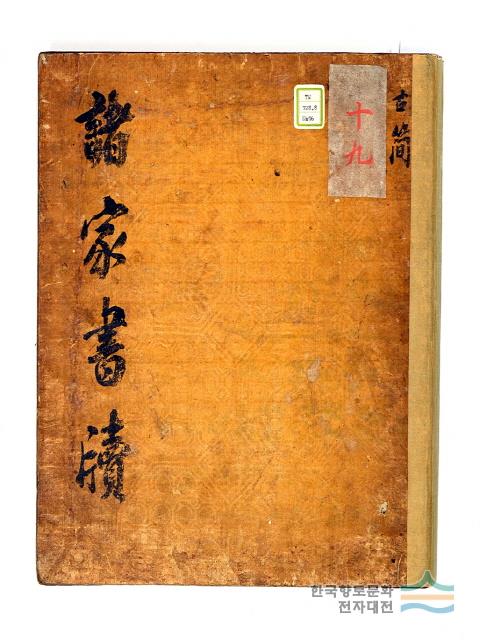 古簡
十九
諸家書牘
한국향토문화
전자대전